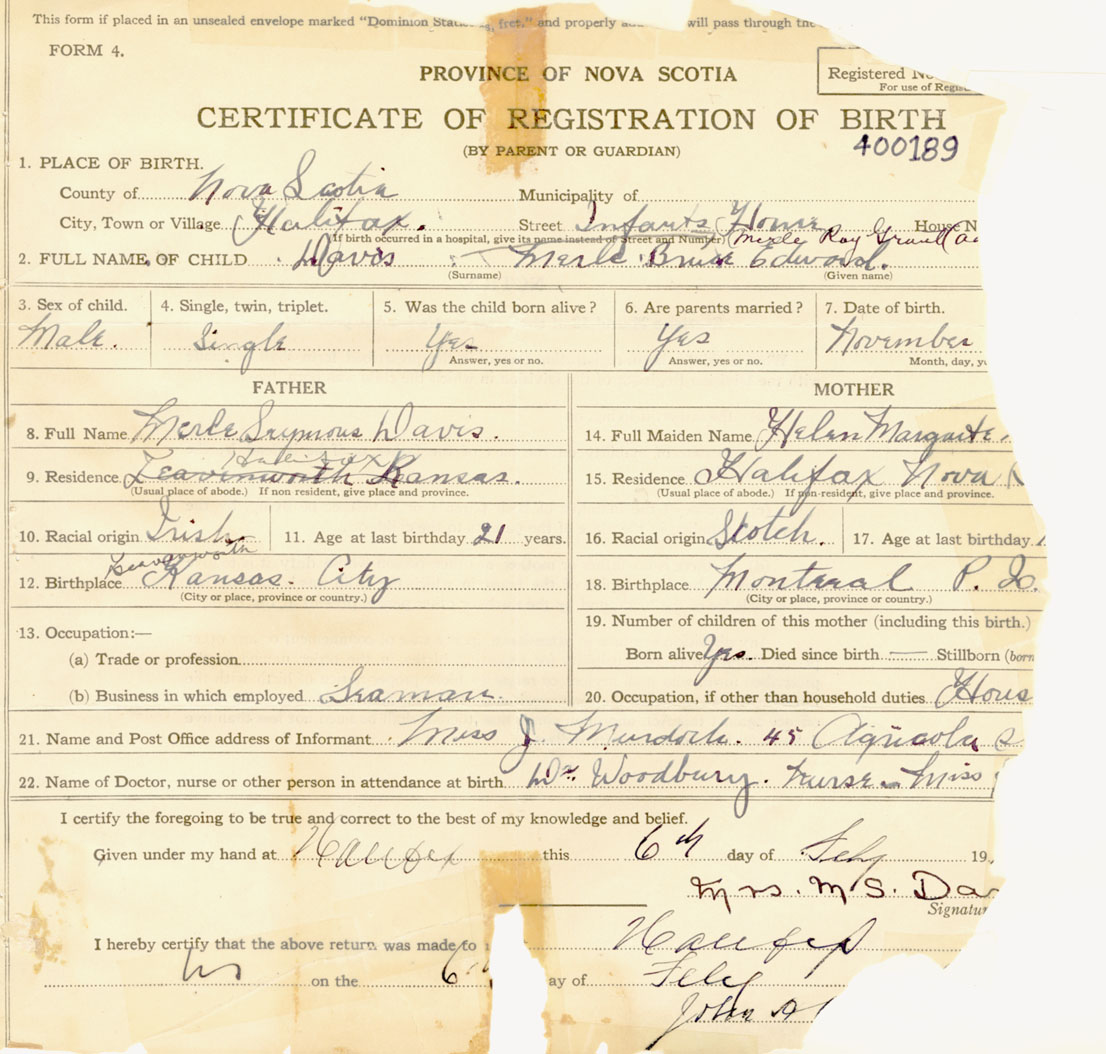 This form if placed in an unsealed envelope marked "Dominion fret," and properly will pass through the
FORM 4.
PROVINCE OF NOVA SCOTIA
Registered No
For use of Regis
CERTIFICATE OF REGISTRATION OF BIRTH
(BY PARENT OR GUARDIAN)
400189
1. PLACE OF BIRTH.
County of Nova Scotia Municipality of
City, Town or Village Halifax. Street Infants Home House N
(If birth occurred in a hospital, give its name instead of Street and Number) (Merle Roy
2. FULL NAME OF CHILD Davis Merle Bruce Edward.
(Surname) (Given name)
3. Sex of child. 4. Single, twin, triplet. 5. Was the child born alive? 6. Are parents married? 7. Date of birth.
Male. Single Yes Yes November
Answer, yes or no. Answer, yes or no. Month, day, y
FATHER MOTHER
8. Full Name Merle Seymous Davis. 14. Full Maiden Name Helen
Halifax
9. Residence Leavenworth Kansas. 15. Residence Halifax Nova
(Usual place of abode.) If non resident, give place and province. (Usual place of abode.) If non-resident, give place and province.
10. Racial origin Irish 11. Age at last birthday 21 years. 16. Racial origin Scotch. 17. Age at last birthday
12. Birthplace Kansas. City 18. Birthplace Montreal P.
(City or place, province or country.) (City or place, province or country.)
13. Occupation:— 19. Number of children of this mother (including this birth.)
(a) Trade or profession Born alive Yes. Died since birth — Stillborn (born
(b) Business in which employed Seaman. 20. Occupation, if other than household duties Hous
21. Name and Post Office address of Informant Miss J. Murdock. 45 Agricola S
22. Name of Doctor, nurse or other person in attendance at birth Dr. Woodbury. Nurse - Miss
I certify the foregoing to be true and correct to the best of my knowledge and belief.
Given under my hand at Halifax this 6th day of Feby 19
Mrs. M S. Da
Signatur
I hereby certify that the above return was made to Halifax
on the 6 ay of Feby
John